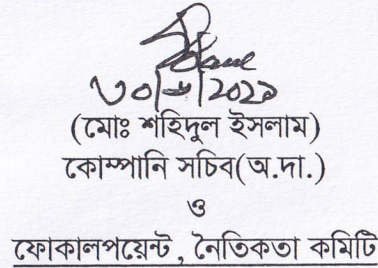 ৩০/৬/২০২১
(মোঃ শহিদুল ইসলাম)
কোম্পানি সচিব(অ.দা.)
ও
ফোকালপয়েন্ট , নৈতিকতা কমিটি